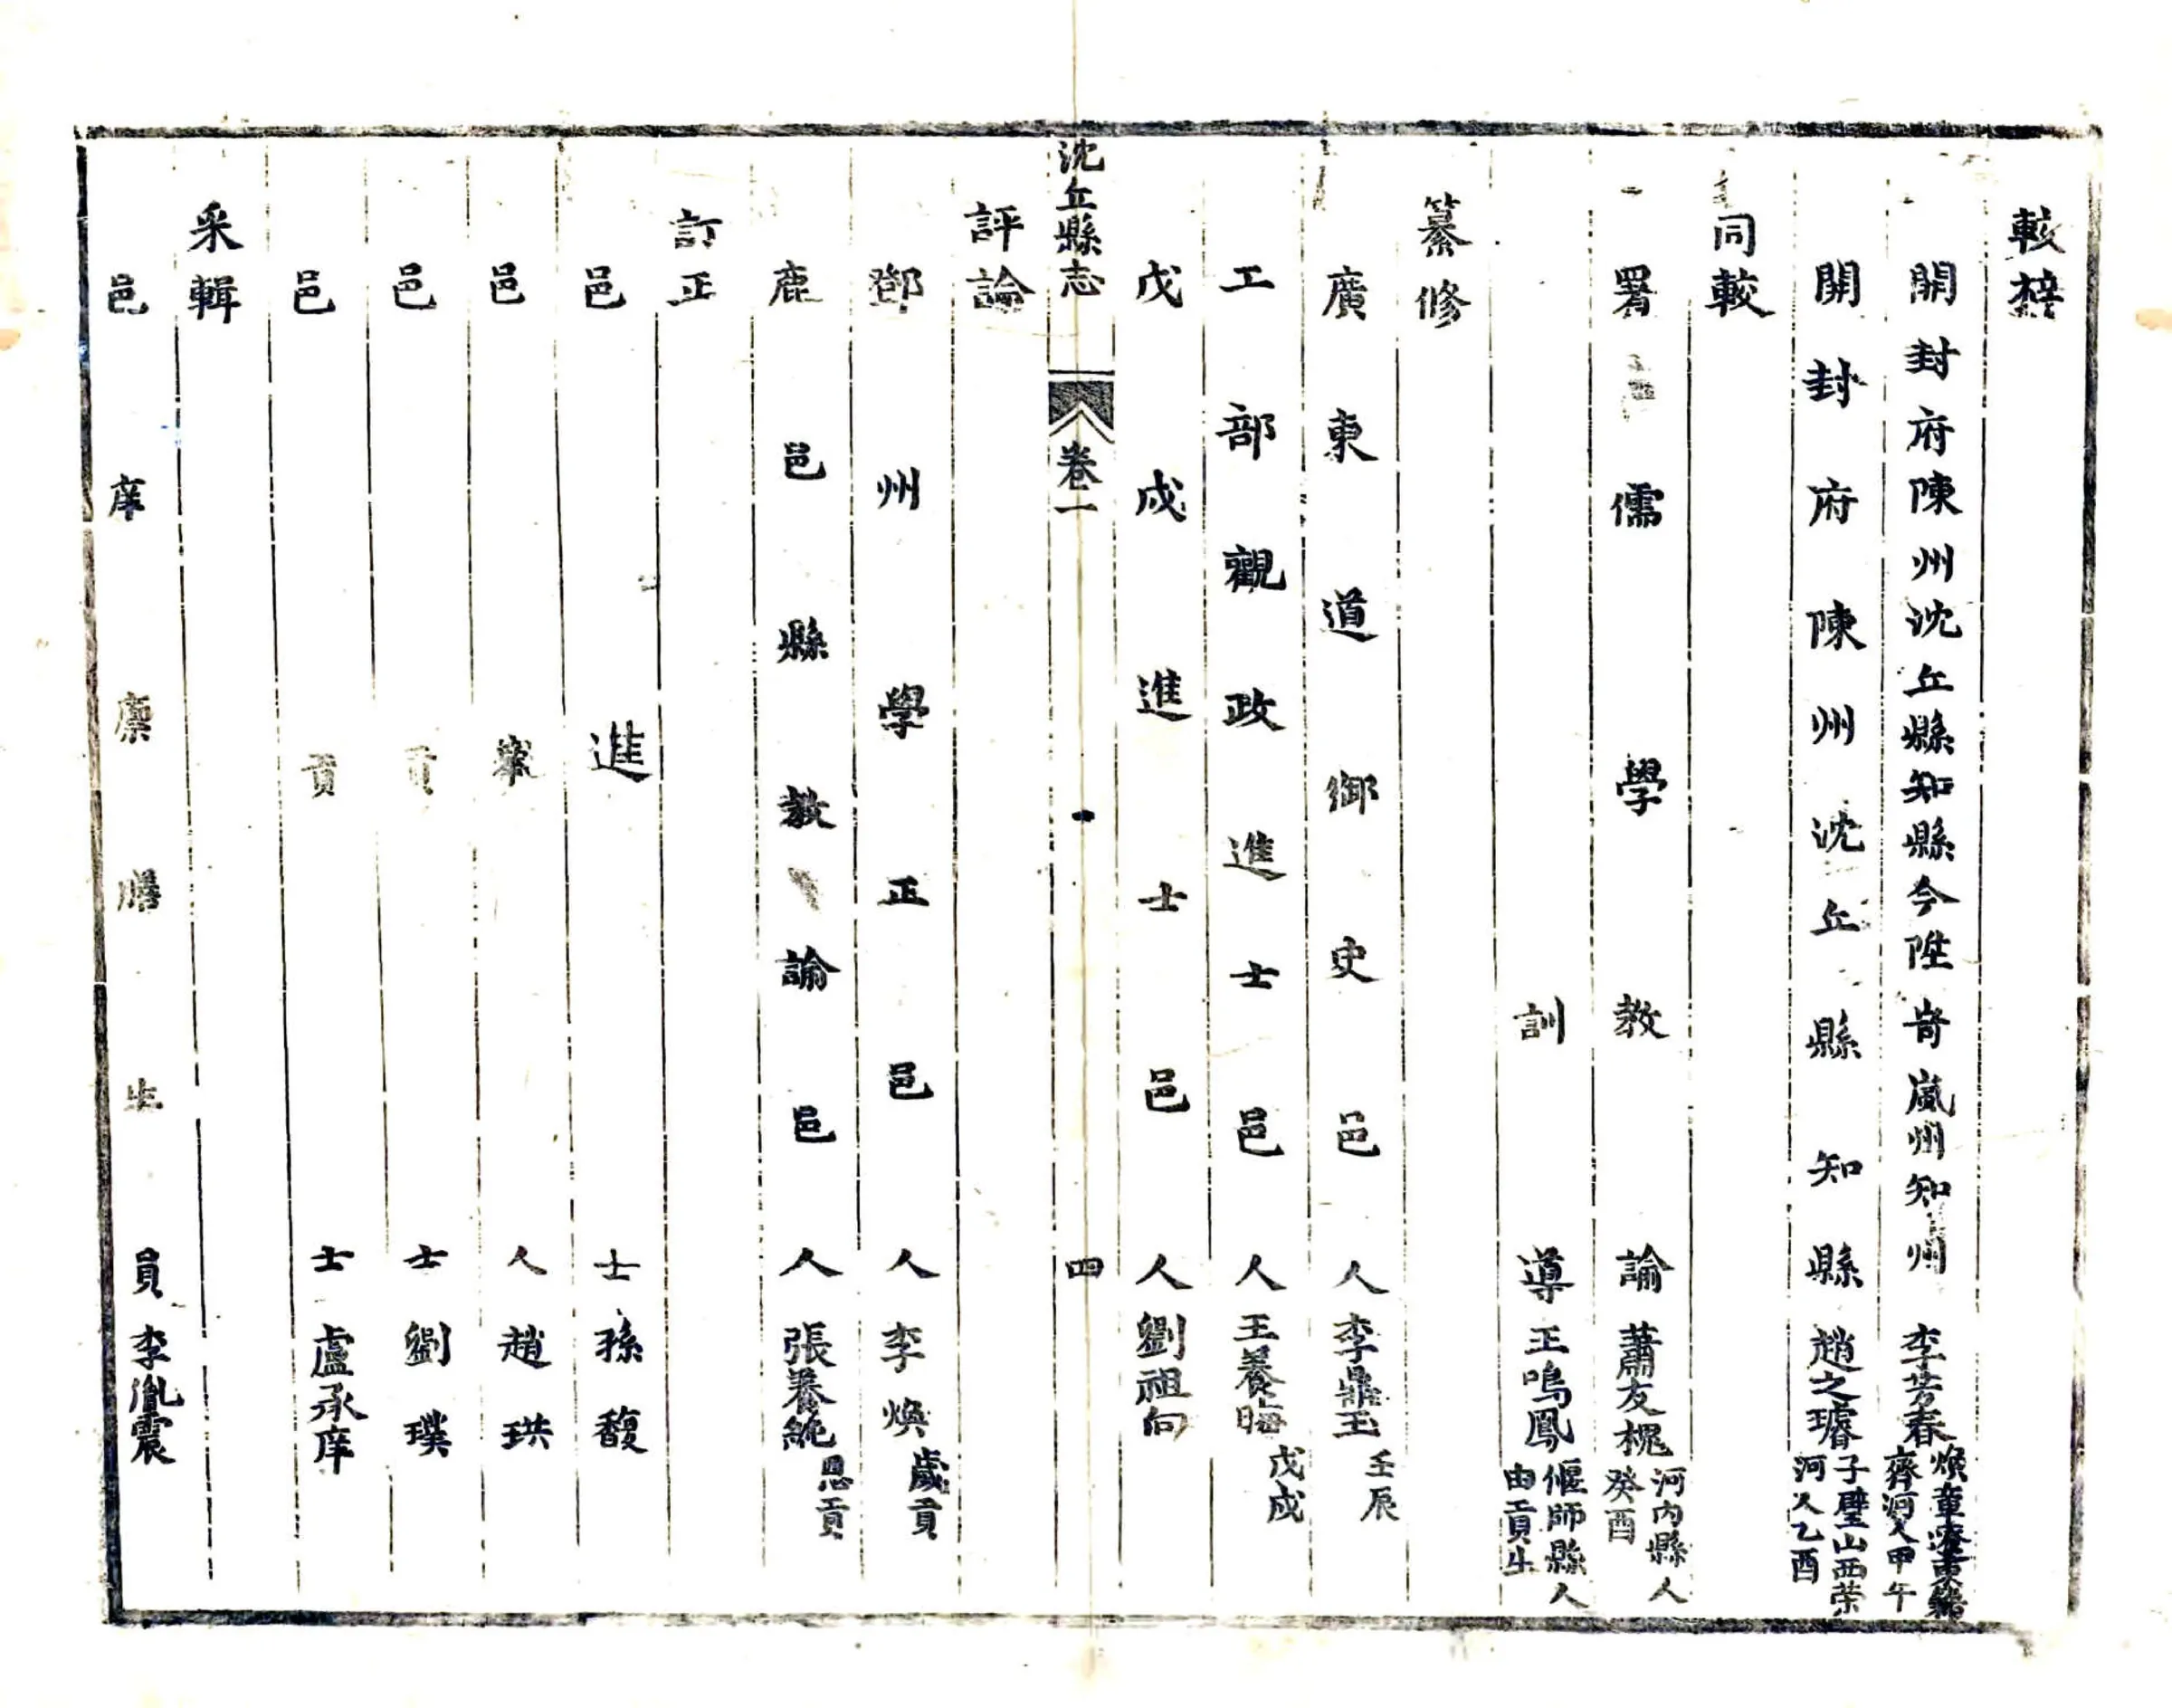 較梓
開封府陳州沈丘縣知縣今陞岢嵐州知州李芳春煥章遼東籍齊河人甲午
開封府陳州沈丘縣知縣趙之璿子璧山西荣河人乙酉
同較
署儒學教諭蕭友槐河内縣人癸酉
訓導王鳴鳳偃師縣人由貢生
纂修
廣東道御史邑人李鼎玉壬辰
工部觀政進士邑人王養晦戊戌
戊戌進士邑人劉祖向
沈丘縣志 卷一 四
評論
鄧州學正邑人李煥歲貢
鹿邑縣教諭邑人張養純恩貢
訂正
邑進士孫馥
邑舉人趙珙
邑貢士劉璞
邑貢士盧承庠
采輯
邑庠廪膳生員李胤震